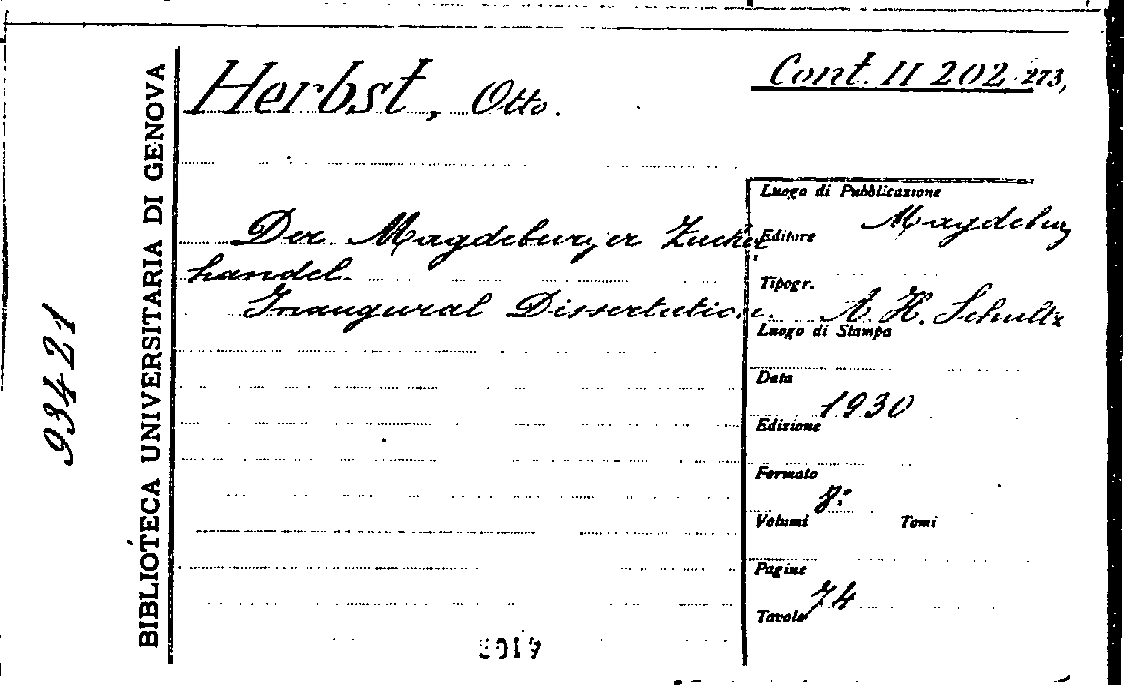 BIBLIOTECA UNIVERSITARIA DI GENOVA
93421
Herbst, Otto.
Cont. II 202 273,
Der Magdeburger Zucker
handel.
Inaugural Dissertation.
Luogo di Pubblicazione
Magdeburg
Editore
Tipogr.
A. H. Schultz
Luogo di Stampa
Data
1930
Edizione
Formato
8:
Volumi Tomi
Pagine
74
Tavole
2019